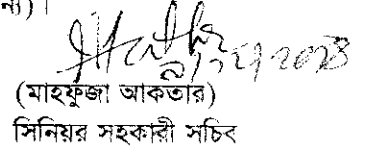 না)।
২০২৪
(মাহফুজা আকতার)
সিনিয়র সহকারী সচিব